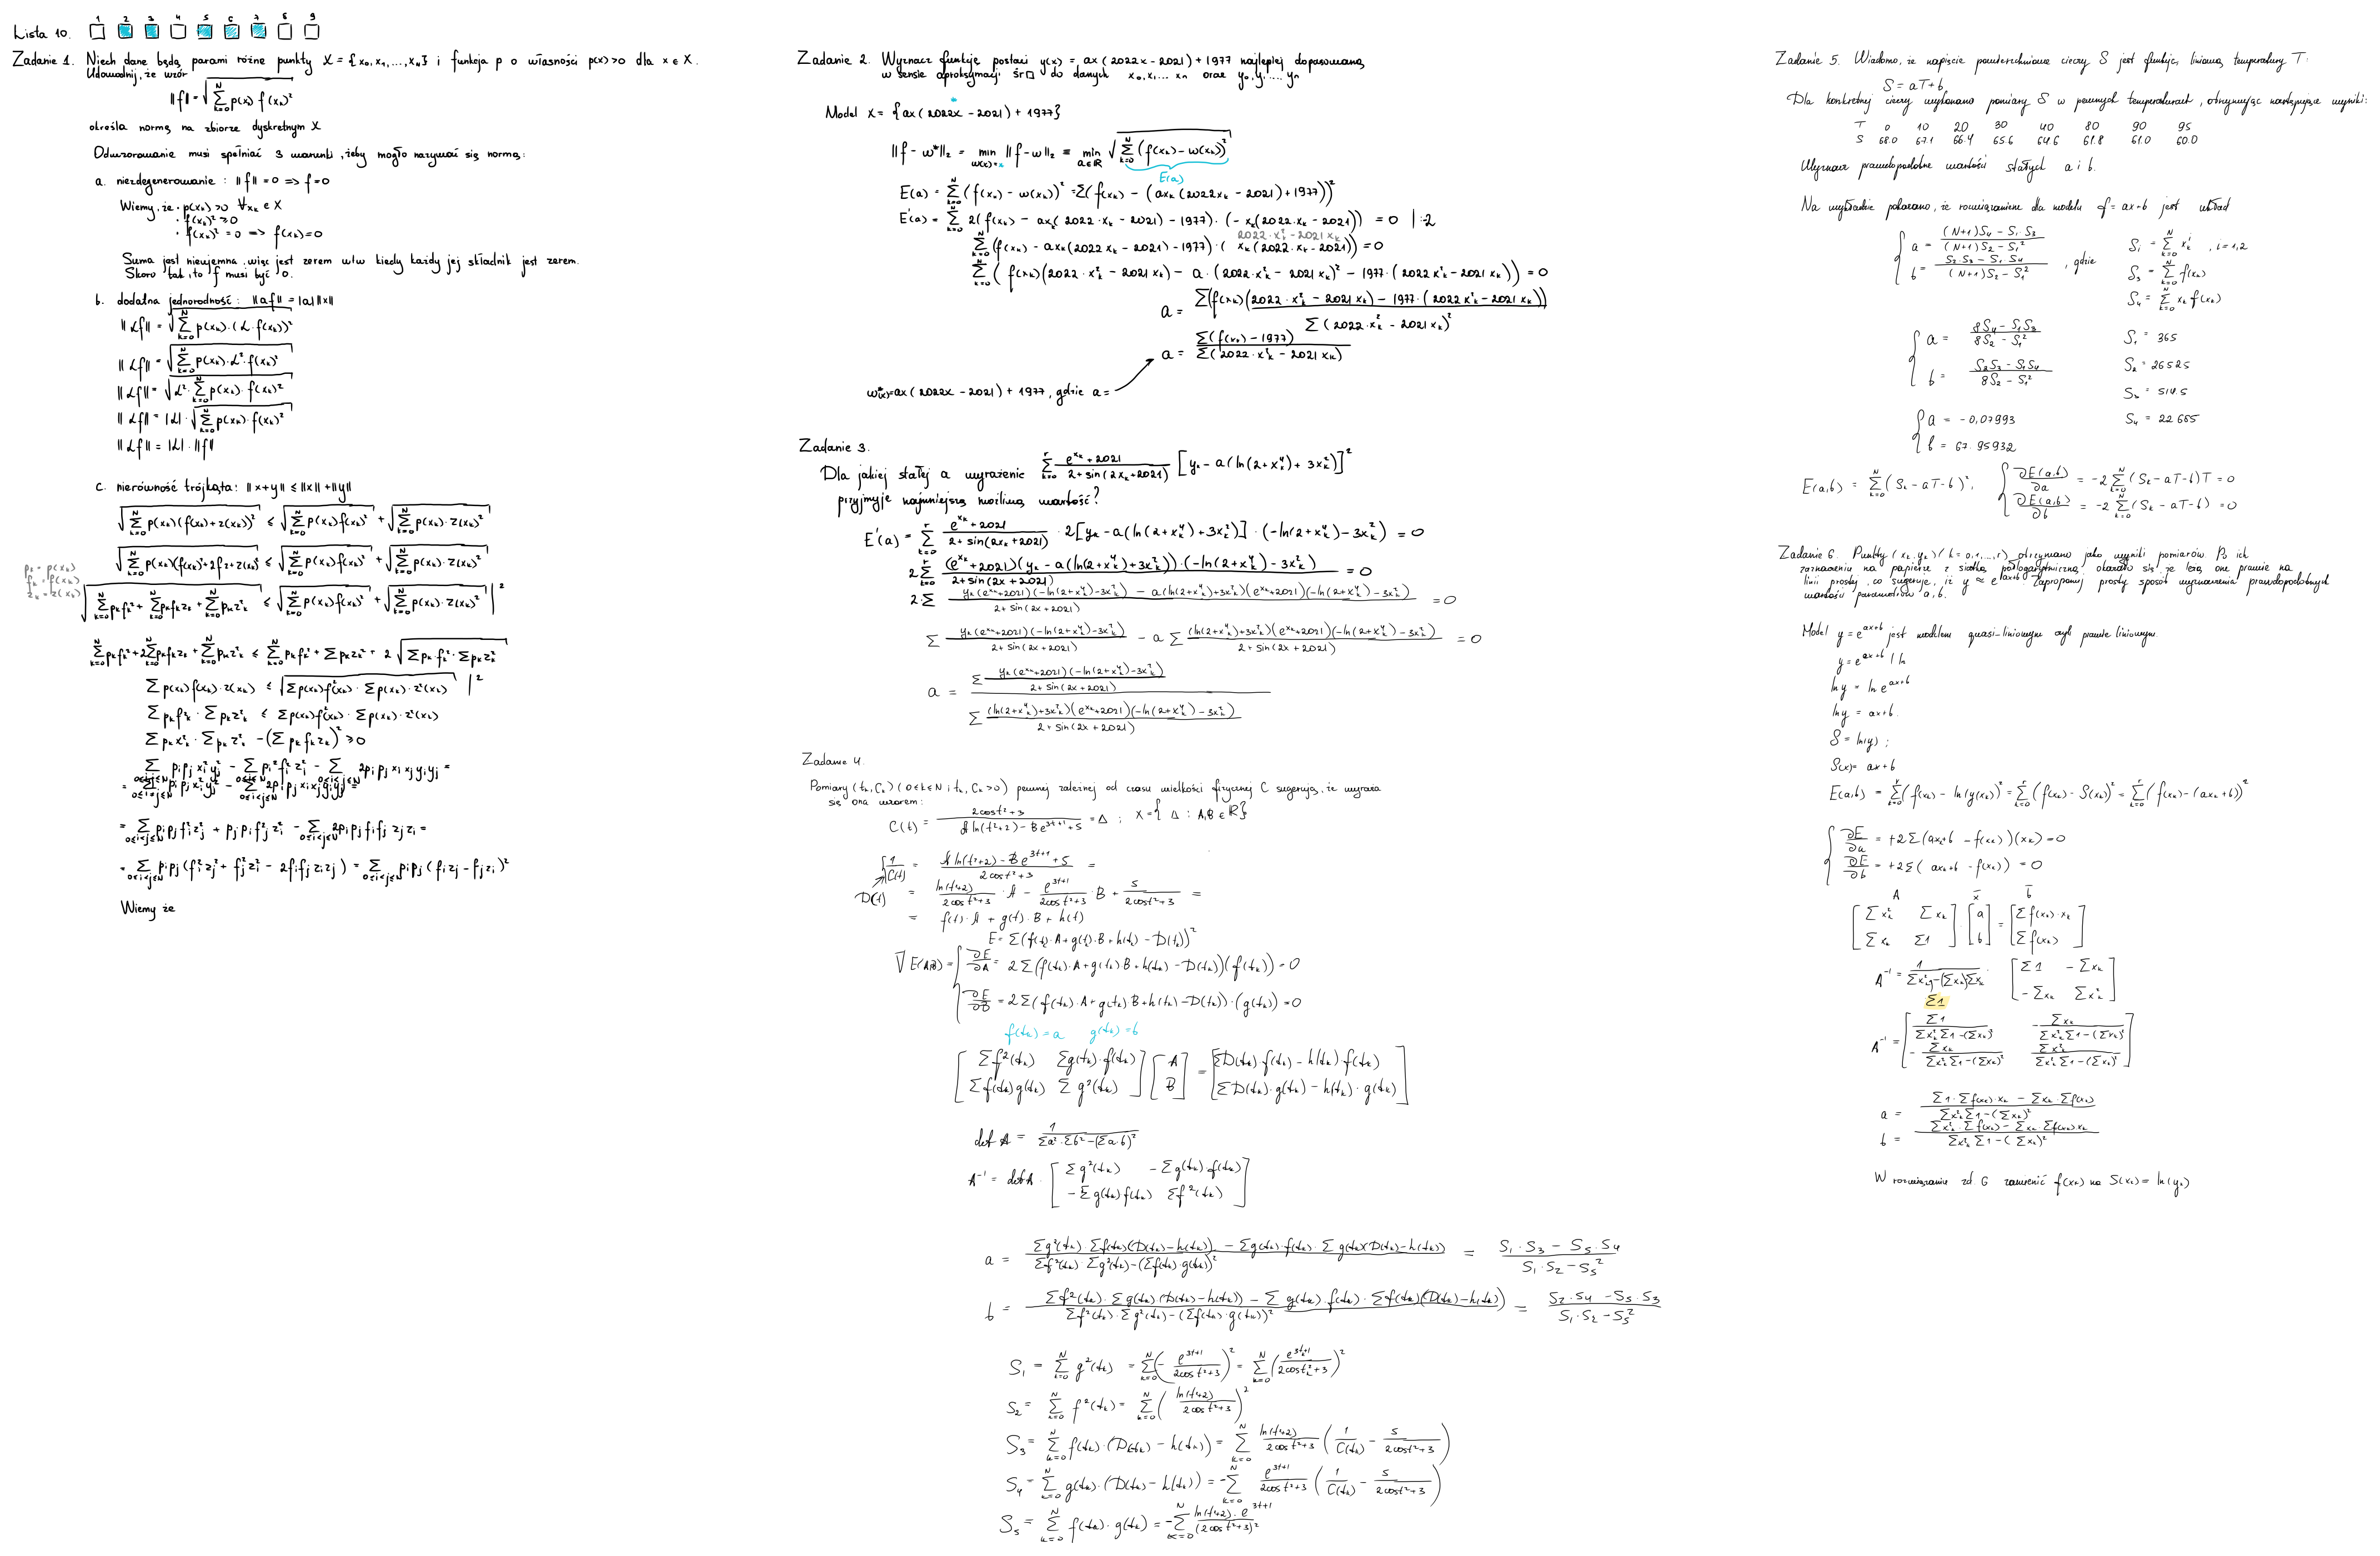 1 2 3 4 5 6 7 8 9
Lista 10.
Zadanie 1. Niech dane będą parami różne punkty X = {x₀, x₁, ..., x_N} i funkcja p o własności p(x)>0 dla x ∈ X.
Udowodnij, że wzór
‖f‖ = √(∑_{k=0}^{N} p(x) f(xₖ)²)
określa normę na zbiorze dyskretnym X
Odwzorowanie musi spełniać 3 warunki, żeby mogło nazywać się normą:
a. niezdegenerowanie : ‖f‖ = 0 => f = 0
Wiemy, że · p(xₖ) > 0 ∀xₖ ∈ X
· f(xₖ)² ≥ 0
· f(xₖ)² = 0 => f(xₖ) = 0
Suma jest nieujemna, więc jest zerem wtw kiedy każdy jej składnik jest zerem.
Skoro tak, to f musi być 0.
b. dodatna jednorodność : ‖af‖ = |a|‖x‖
‖αf‖ = √(∑_{k=0}^{N} p(xₖ)·(α·f(xₖ))²)
‖αf‖ = √(∑_{k=0}^{N} p(xₖ)·α²·f(xₖ)²)
‖αf‖ = √(α²·∑_{k=0}^{N} p(xₖ)·f(xₖ)²)
‖αf‖ = |α|·√(∑_{k=0}^{N} p(xₖ)·f(xₖ)²)
‖αf‖ = |α|·‖f‖
c. nierówność trójkąta: ‖x+y‖ ≤ ‖x‖+‖y‖
√(∑_{k=0}^{N} p(xₖ)(f(xₖ)+z(xₖ))²) ≤ √(∑_{k=0}^{N} p(xₖ)f(xₖ)²) + √(∑_{k=0}^{N} p(xₖ)·z(xₖ)²)
√(∑_{k=0}^{N} p(xₖ)(f(xₖ)²+2fz+z(xₖ)²) ≤ √(∑_{k=0}^{N} p(xₖ)f(xₖ)²) + √(∑_{k=0}^{N} p(xₖ)·z(xₖ)²)
pₖ = p(xₖ)
fₖ = f(xₖ)
zₖ = z(xₖ)
√(∑_{k=0}^{N} pₖfₖ² + ∑_{k=0}^{N} pₖfₖzₖ + ∑_{k=0}^{N} pₖzₖ²) ≤ √(∑_{k=0}^{N} p(xₖ)f(xₖ)²) + √(∑_{k=0}^{N} p(xₖ)·z(xₖ)²) |²
∑_{k=0}^{N} pₖfₖ² + 2∑_{k=0}^{N} pₖfₖzₖ + ∑_{k=0}^{N} pₖzₖ² ≤ ∑_{k=0}^{N} pₖfₖ² + ∑pₖzₖ² + 2√(∑pₖ·fₖ²·∑pₖzₖ²)
∑p(xₖ)f(xₖ)·z(xₖ) ≤ √(∑p(xₖ)f²(xₖ)·∑p(xₖ)·z²(xₖ)) |²
∑pₖfₖ²·∑pₖzₖ² ≤ ∑p(xₖ)f²(xₖ)·∑p(xₖ)·z²(xₖ)
∑pₖxₖ²·∑pₖzₖ² − (∑pₖfₖzₖ)² ≥ 0
∑_{0≤i,j≤N} pᵢpⱼxᵢ²yⱼ² − ∑_{0≤i≤N} pᵢ²fᵢ²zᵢ² − ∑_{0≤i<j≤N} 2pᵢpⱼxᵢxⱼyᵢyⱼ =
= ∑_{0≤i≠j≤N} pᵢpⱼxᵢ²yⱼ² − ∑_{0≤i<j≤N} 2pᵢpⱼxᵢxⱼyᵢyⱼ =
= ∑_{0≤i<j≤N} pᵢpⱼfᵢ²zⱼ² + pⱼpᵢfⱼ²zᵢ² − ∑_{0≤i<j≤N} 2pᵢpⱼfᵢfⱼzⱼzᵢ =
= ∑_{0≤i<j≤N} pᵢpⱼ(fᵢ²zⱼ² + fⱼ²zᵢ² − 2fᵢfⱼzᵢzⱼ) = ∑_{0≤i<j≤N} pᵢpⱼ(fᵢzⱼ − fⱼzᵢ)²
Wiemy że
Zadanie 2. Wyznacz funkcję postaci y(x) = ax(2022x − 2021) + 1977 najlepiej dopasowaną
w sensie aproksymacji śr□ do danych x₀, x₁ ... xₙ oraz y₀, y₁, ... yₙ
Model X = {ax(2022x − 2021) + 1977}
‖f − w*‖₂ = min_{w(x)=*} ‖f − w‖₂ = min_{a∈ℝ} √(∑_{k=0}^{N} (f(xₖ) − w(xₖ))²)
E(a)
E(a) = ∑_{k=0}^{N} (f(xₖ) − w(xₖ))² = ∑(f(xₖ) − (axₖ(2022xₖ − 2021) + 1977))²
E'(a) = ∑_{k=0}^{N} 2(f(xₖ) − axₖ(2022·xₖ − 2021) − 1977)·(−xₖ(2022·xₖ − 2021)) = 0 |:2
2022·xₖ² − 2021xₖ
∑_{k=0}^{N} (f(xₖ) − axₖ(2022xₖ − 2021) − 1977)·(xₖ(2022·xₖ − 2021)) = 0
∑_{k=0}^{N} (f(xₖ)(2022·xₖ² − 2021xₖ) − a·(2022·xₖ² − 2021xₖ)² − 1977·(2022xₖ² − 2021xₖ)) = 0
a = ∑(f(xₖ)(2022·xₖ² − 2021xₖ) − 1977·(2022xₖ² − 2021xₖ)) / ∑(2022·xₖ² − 2021xₖ)²
a = ∑(f(xₖ) − 1977) / ∑(2022·xₖ² − 2021xₖ)
w*(x)=ax(2022x − 2021) + 1977, gdzie a =
Zadanie 3.
Dla jakiej stałej a wyrażenie ∑_{k=0}^{r} (e^{xₖ}+2021)/(2+sin(2xₖ+2021)) [yₖ − a(ln(2+xₖ⁴)+3xₖ²)]²
przyjmuje najmniejszą możliwą wartość?
E'(a) = ∑_{k=0}^{r} (e^{xₖ}+2021)/(2+sin(2xₖ+2021)) · 2[yₖ − a(ln(2+xₖ⁴)+3xₖ²)]·(−ln(2+xₖ⁴)−3xₖ²) = 0
2∑_{k=0}^{r} (e^{xₖ}+2021)(yₖ − a(ln(2+xₖ⁴)+3xₖ²))·(−ln(2+xₖ⁴)−3xₖ²) / (2+sin(2x+2021)) = 0
2·∑ (yₖ(e^{xₖ}+2021)(−ln(2+xₖ⁴)−3xₖ²) − a(ln(2+xₖ⁴)+3xₖ²)(e^{xₖ}+2021)(−ln(2+xₖ⁴)−3xₖ²)) / (2+sin(2x+2021)) = 0
∑ yₖ(e^{xₖ}+2021)(−ln(2+xₖ⁴)−3xₖ²)/(2+sin(2x+2021)) − a∑ (ln(2+xₖ⁴)+3xₖ²)(e^{xₖ}+2021)(−ln(2+xₖ⁴)−3xₖ²)/(2+sin(2x+2021)) = 0
a = [∑ yₖ(e^{xₖ}+2021)(−ln(2+xₖ⁴)−3xₖ²)/(2+sin(2x+2021))] / [∑ (ln(2+xₖ⁴)+3xₖ²)(e^{xₖ}+2021)(−ln(2+xₖ⁴)−3xₖ²)/(2+sin(2x+2021))]
Zadanie 4.
Pomiary (tₖ, Cₖ) (0≤k≤N ; tₖ, Cₖ>0) pewnej zależnej od czasu wielkości fizycznej C sugerują, że wyraża
się ona wzorem:
C(t) = (2cost²+3)/(A ln(t²+2) − Be^{3t+1}+5) = Δ ; X = {Δ : A,B ∈ ℝ}
1/C(t) = (A ln(t²+2) − Be^{3t+1}+5)/(2cost²+3) =
D(t) = ln(t²+2)/(2cost²+3) · A − e^{3t+1}/(2cost²+3) · B + 5/(2cost²+3) =
= f(t)·A + g(t)·B + h(t)
E = ∑(f(tₖ)·A + g(tₖ)·B + h(tₖ) − D(tₖ))²
∇E(A,B) = { ∂E/∂A = 2∑(f(tₖ)·A + g(tₖ)B + h(tₖ) − D(tₖ))(f(tₖ)) = 0
∂E/∂B = 2∑(f(tₖ)·A + g(tₖ)B + h(tₖ) − D(tₖ))·(g(tₖ)) = 0
f(tₖ) = a g(tₖ) = b
[∑f²(tₖ) ∑g(tₖ)·f(tₖ)] [A] = [∑D(tₖ)·f(tₖ) − h(tₖ)·f(tₖ)]
[∑f(tₖ)g(tₖ) ∑g²(tₖ)] [B] [∑D(tₖ)·g(tₖ) − h(tₖ)·g(tₖ)]
det A = 1/(∑a²·∑b² − (∑a·b)²)
A⁻¹ = det A · [∑g²(tₖ) −∑g(tₖ)·f(tₖ)]
[−∑g(tₖ)f(tₖ) ∑f²(tₖ)]
a = (∑g²(tₖ)·∑f(tₖ)(D(tₖ)−h(tₖ)) − ∑g(tₖ)·f(tₖ)·∑g(tₖ)(D(tₖ)−h(tₖ))) / (∑f²(tₖ)·∑g²(tₖ)−(∑f(tₖ)·g(tₖ))²) = (S₁·S₃ − S₅·S₄)/(S₁·S₂ − S₅²)
b = (∑f²(tₖ)·∑g(tₖ)(D(tₖ)−h(tₖ)) − ∑g(tₖ)·f(tₖ)·∑f(tₖ)(D(tₖ)−h(tₖ))) / (∑f²(tₖ)·∑g²(tₖ)−(∑f(tₖ)·g(tₖ))²) = (S₂·S₄ − S₅·S₃)/(S₁·S₂ − S₅²)
S₁ = ∑_{k=0}^{N} g²(tₖ) = ∑_{k=0}^{N} (−e^{3t+1}/(2cost²+3))² = ∑_{k=0}^{N} (e^{3tₖ+1}/(2costₖ²+3))²
S₂ = ∑_{k=0}^{N} f²(tₖ) = ∑_{k=0}^{N} (ln(t²+2)/(2cost²+3))²
S₃ = ∑_{k=0}^{N} f(tₖ)·(D(tₖ) − h(tₖ)) = ∑_{k=0}^{N} ln(t²+2)/(2cost²+3) (1/C(tₖ) − 5/(2cost²+3))
S₄ = ∑_{k=0}^{N} g(tₖ)·(D(tₖ) − h(tₖ)) = −∑_{k=0}^{N} e^{3t+1}/(2cost²+3) (1/C(tₖ) − 5/(2cost²+3))
S₅ = ∑_{k=0}^{N} f(tₖ)·g(tₖ) = −∑_{k=0}^{N} ln(t²+2)·e^{3t+1}/(2cost²+3)²
Zadanie 5. Wiadomo, że napięcie powierzchniowe cieczy S jest funkcją liniową temperatury T:
S = aT+b
Dla konkretnej cieczy wykonano pomiary S w pewnych temperaturach, otrzymując następujące wyniki:
T 0 10 20 30 40 80 90 95
S 68.0 67.1 66.4 65.6 64.6 61.8 61.0 60.0
Wyznacz prawdopodobne wartości stałych a i b.
Na wykładzie pokazano, że rozwiązaniem dla modelu f = ax+b jest układ
{ a = ((N+1)S₄ − S₁·S₃)/((N+1)S₂ − S₁²)
b = (S₂·S₃ − S₁·S₄)/((N+1)S₂ − S₁²) , gdzie
Sᵢ = ∑_{k=0}^{N} xₖⁱ , i=1,2
S₃ = ∑_{k=0}^{N} f(xₖ)
S₄ = ∑_{k=0}^{N} xₖ f(xₖ)
{ a = (8S₄ − S₁S₃)/(8S₂ − S₁²)
b = (S₂S₃ − S₁S₄)/(8S₂ − S₁²)
S₁ = 365
S₂ = 26525
S₃ = 514.5
S₄ = 22685
{ a = −0,07993
b = 67.95932
E(a,b) = ∑_{k=0}^{N} (Sₖ−aT−b)², { ∂E(a,b)/∂a = −2∑_{k=0}^{N} (Sₖ−aT−b)T = 0
∂E(a,b)/∂b = −2∑_{k=0}^{N} (Sₖ−aT−b) = 0
Zadanie 6. Punkty (xₖ, yₖ) (k = 0,1,...,r) otrzymano jako wyniki pomiarów. Po ich
zaznaczeniu na papierze z siatką półlogarytmiczną okazało się że leżą one prawie na
linii prostej, co sugeruje, iż y ≈ e^{ax+b}. Zaproponuj prosty sposób wyznaczenia prawdopodobnych
wartości parametrów a, b.
Model y = e^{ax+b} jest modelem quasi-liniowym czyli prawie liniowym.
y = e^{ax+b} | ln
ln y = ln e^{ax+b}
ln y = ax+b.
S = ln(y) ;
S(x) = ax+b
E(a,b) = ∑_{k=0}^{r} (f(xₖ) − ln(y(xₖ))² = ∑_{k=0}^{r} (f(xₖ) − S(xₖ))² = ∑_{k=0}^{r} (f(xₖ) − (axₖ+b))²
{ ∂E/∂a = +2∑(axₖ+b − f(xₖ))(xₖ) = 0
∂E/∂b = +2∑(axₖ+b − f(xₖ)) = 0
A x̄ b̄
[∑xₖ² ∑xₖ] · [a] = [∑f(xₖ)·xₖ]
[∑xₖ ∑1] [b] [∑f(xₖ)]
A⁻¹ = 1/(∑xₖ²−(∑xₖ)∑xₖ · [∑1 −∑xₖ]
[−∑xₖ ∑xₖ²]
∑1
A⁻¹ = [∑1/(∑xₖ²∑1−(∑xₖ)²) −∑xₖ/(∑xₖ²∑1−(∑xₖ)²)]
[−∑xₖ/(∑xₖ²∑1−(∑xₖ)²) ∑xₖ²/(∑xₖ²∑1−(∑xₖ)²)]
a = (∑1·∑f(xₖ)·xₖ − ∑xₖ·∑f(xₖ))/(∑xₖ²∑1−(∑xₖ)²)
b = (∑xₖ²·∑f(xₖ) − ∑xₖ·∑f(xₖ)xₖ)/(∑xₖ²∑1−(∑xₖ)²)
W rozwiązaniu zd. 6 zamienić f(xₖ) na S(xₖ) = ln(yₖ)